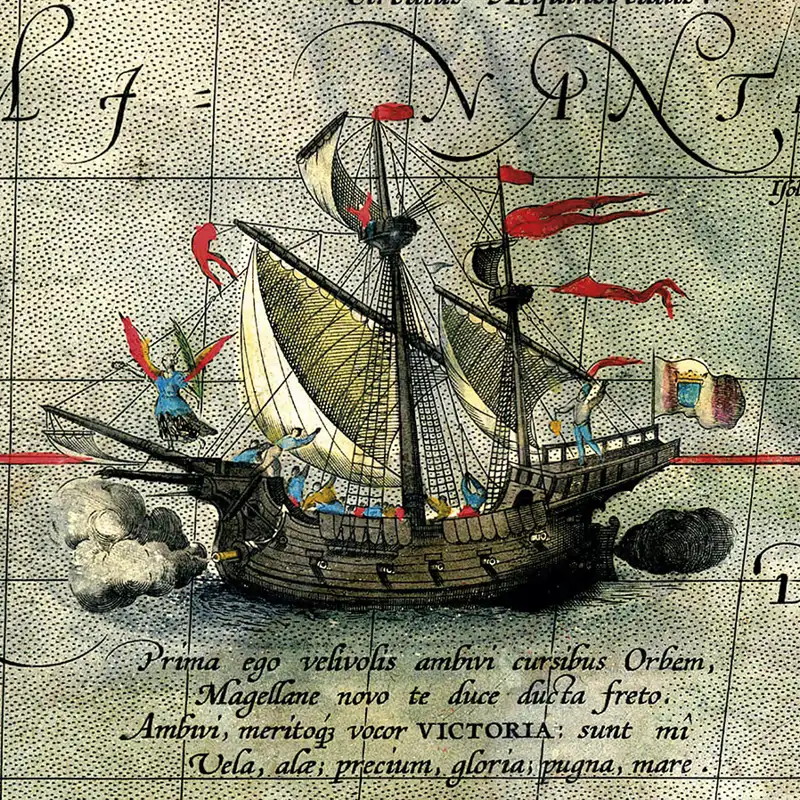 Circulus Aequinoctialis.
NANT
Prima ego velivolis ambivi cursibus Orbem,
Magellane novo te duce ducta freto.
Ambivi, meritoq́ʒ vocor VICTORIA: sunt mî
Vela, alæ; precium, gloria; pugna, mare.